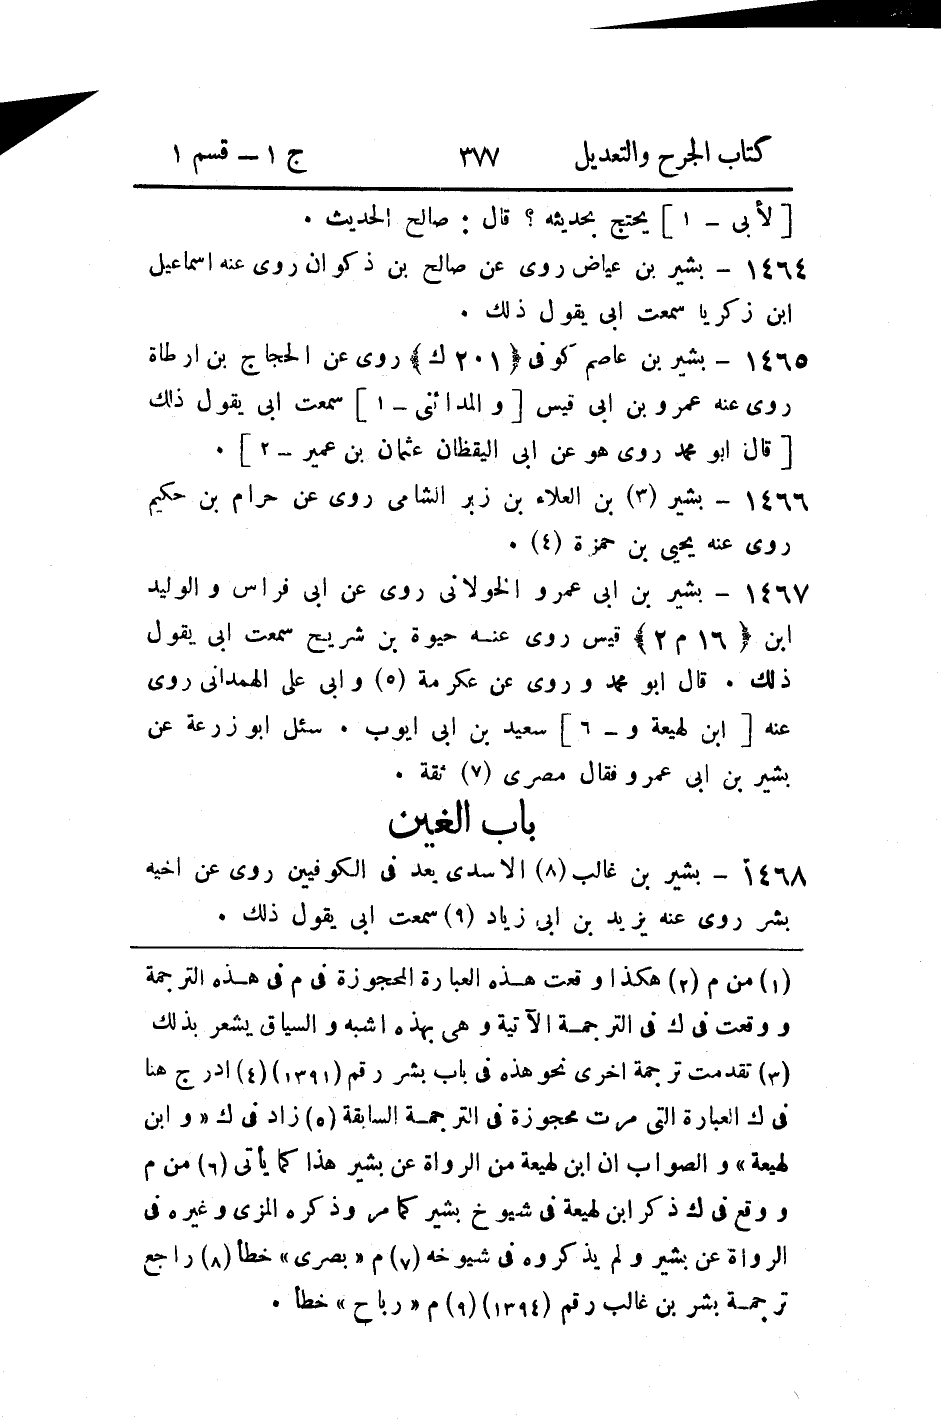 كتاب الجرح والتعديل ٣٧٧ ج ١ – قسم ١
[ لأبى – ١ ] يحتج بحديثه ؟ قال : صالح الحديث .
١٤٦٤ – بشير بن عياض روى عن صالح بن ذكوان روى عنه اسماعيل
ابن زكريا سمعت ابى يقول ذلك .
١٤٦٥ – بشير بن عاصم كوفى ﴿ ٢٠١ ك ﴾ روى عن الحجاج بن ارطاة
روى عنه عمرو بن ابى قيس [ و المدائنى – ١ ] سمعت ابى يقول ذلك
[ قال ابو محمد روى هو عن ابى اليقظان عثمان بن عمير – ٢ ] .
١٤٦٦ – بشير (٣) بن العلاء بن زبر الشامى روى عن حرام بن حكيم
روى عنه يحيى بن حمزة (٤) .
١٤٦٧ – بشير بن ابى عمرو الخولانى روى عن ابى فراس و الوليد
ابن ﴿ ١٦ م ٢ ﴾ قيس روى عنه حيوة بن شريح سمعت ابى يقول
ذلك . قال ابو محمد و روى عن عكرمة (٥) و ابى على الهمدانى روى
عنه [ ابن لهيعة و – ٦ ] سعيد بن ابى ايوب . سئل ابو زرعة عن
بشير بن ابى عمرو فقال مصرى (٧) ثقة .
باب الغين
١٤٦٨ – بشير بن غالب (٨) الاسدى يعد فى الكوفيين روى عن اخيه
بشر روى عنه يزيد بن ابى زياد (٩) سمعت ابى يقول ذلك .
(١) من م (٢) هكذا وقعت هذه العبارة المحجوزة فى م فى هذه الترجمة
و وقعت فى ك فى الترجمة الآتية و هى بهذه اشبه و السياق يشعر بذلك
(٣) تقدمت ترجمة اخرى نحو هذه فى باب بشر رقم (١٣٩١) (٤) ادرج هنا
فى ك العبارة التى مرت محجوزة فى الترجمة السابقة (٥) زاد فى ك « و ابن
لهيعة » و الصواب ان ابن لهيعة من الرواة عن بشير هذا كما يأتى (٦) من م
و وقع فى ك ذكر ابن لهيعة فى شيوخ بشير كما مر وذكره المزى وغيره فى
الرواة عن بشير و لم يذكروه فى شيوخه (٧) م « بصرى » خطأ (٨) راجع
ترجمة بشر بن غالب رقم (١٣٩٤) (٩) م « رباح » خطأ .